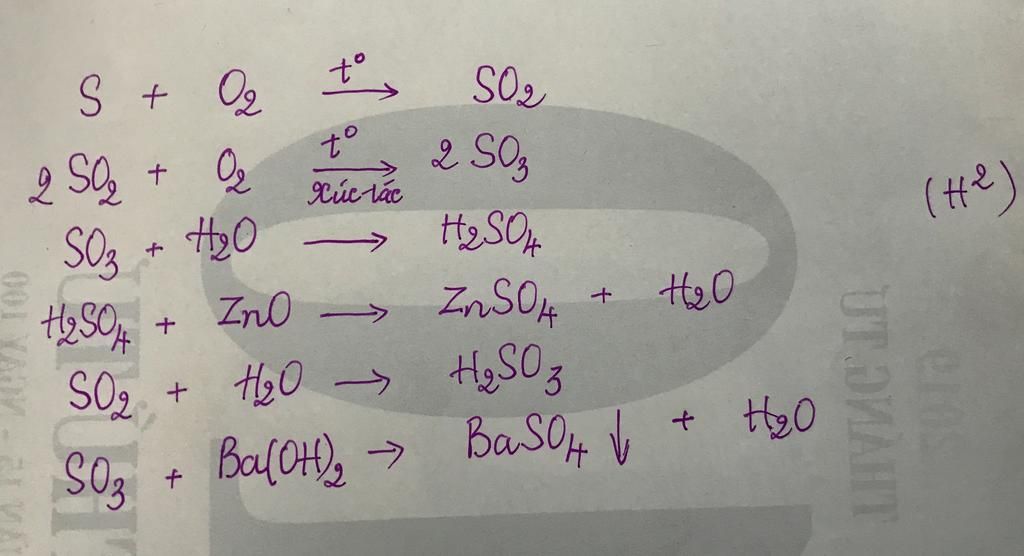 S + O₂ →(t°) SO₂
2 SO₂ + O₂ →(t° / xúc tác) 2 SO₃
(H²)
SO₃ + H₂O → H₂SO₄
H₂SO₄ + ZnO → ZnSO₄ + H₂O
SO₂ + H₂O → H₂SO₃
SO₃ + Ba(OH)₂ → BaSO₄ ↓ + H₂O
THÁNG TƯ
2019